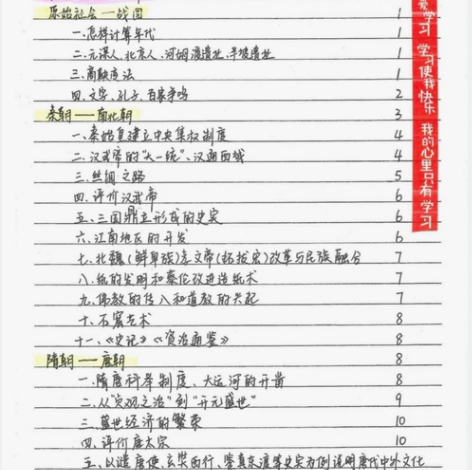 原始社会——战国 1
一.怎样计算年代 1
二.元谋人、北京人、河姆渡遗址、半坡遗址 1
三.商鞅变法 1
四.文字、孔子、百家争鸣 2
秦朝——南北朝 3
一、秦始皇建立中央集权制度 4
二、汉武帝的“大一统”、汉通西域 4
三.丝绸之路 5
四.评价汉武帝 6
五、三国鼎立形成的史实 6
六、江南地区的开发 6
七.北魏(鲜卑族)孝文帝(拓拔宏)改革与民族融合 7
八.纸的发明和蔡伦改进造纸术 7
九.佛教的传入和道教的兴起 7
十、石窟艺术 8
十一、《史记》《资治通鉴》 8
隋朝——唐朝 8
一.隋唐科举制度、大运河的开凿 8
二.从“贞观之治”到“开元盛世” 9
三.盛世经济的繁荣 10
四.评价唐太宗 10
五、以遣唐使、玄奘西行、鉴真东渡等史实为例说明唐代中外文化
爱学习 学习使我快乐 我的心里只有学习